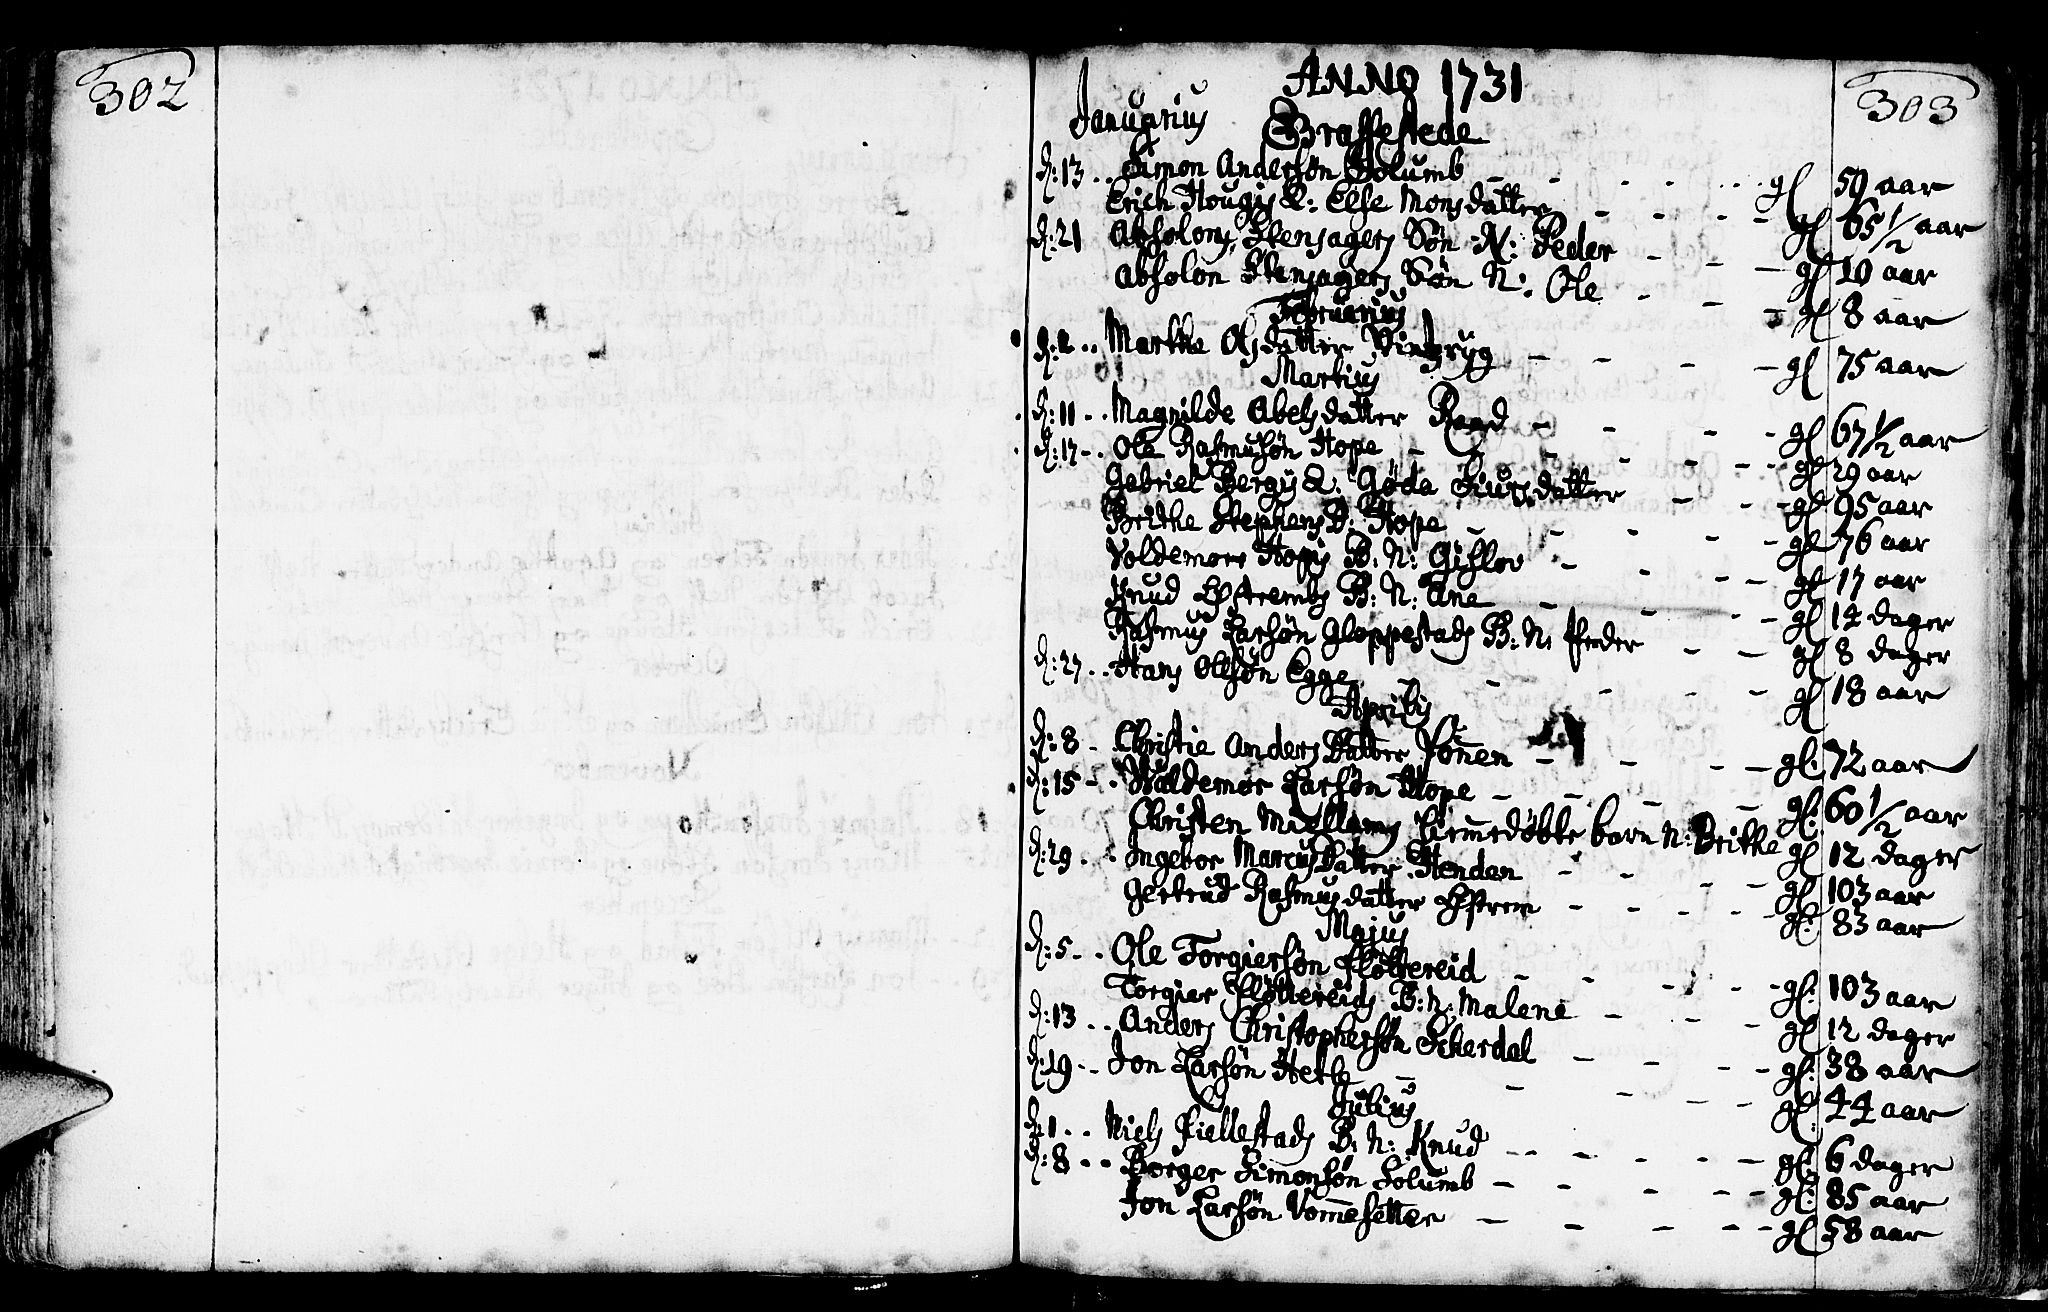 302
ANNO 1731
303
Januarius Graffestede
d: 13 .. Simon Andersøn Solumb - - - - gl 59 aar
Erich Hougis Q: Else Monsdatter - - - gl 65 1/2 aar
d: 21 Absolons Stensagers Søn N: Peder - - - gl 10 aar
Absolon Stensagers Søn N: Ole - - - gl 8 aar
Februarius
d: 2 .. Marthe Olsdatter - - - gl 75 aar
Martius
d: 11 .. Magnilde Abelsdatter Raad - - - gl 67 1/2 aar
d: 17 .. Ole Rasmusøn Hope - - - gl 29 aar
Gabriel Bergs Q: Gøda Siursdatter - - gl 95 aar
Brithe Stephens D: Hope - - - gl 76 aar
Voldemors Hopis B: N: Gislov - - - gl 17 aar
Knud Østrembs B: N: Ane - - - gl 14 dager
Rasmus Larsøn Gloppestads B: N: Peder - - gl 8 dager
d: 27 .. Hans Olsøn Egge - - - gl 18 aar
Aprilis
d: 8 - Christie Anders Datter Fønen - - - gl: 72 aar
d: 15 - . Waldemor Larsøn Hope - - - gl: 60 1/2 aar
Christen Miellems hiemedøbte barn N: Brithe gl 12 dager
d: 29 .. Ingebor Marcus Datter Hendan - - - gl 103 aar
Gertrud Rasmusdatter Østrem - - - gl: 83 aar
Majus
d: 5 - . Ole Torgiersøn Fløttereid - - - gl: 103 aar
Torgier Fløttereids B: N: Malene - - - gl: 12 dager
d: 13 .. Anders Christophersøn Scherdal - - - gl: 38 aar
d: 19 - - Jon Larsøn Hetle - - - gl: 44 aar
Julius
d: 1 .. Niels Fiellestads B: N: Knud - - - gl: 6 dager
d: 8 .. Borger Simonsøn Solumb - - - gl: 85 aar
Jon Larsøn Vom̄esetter - - - gl 58 aar